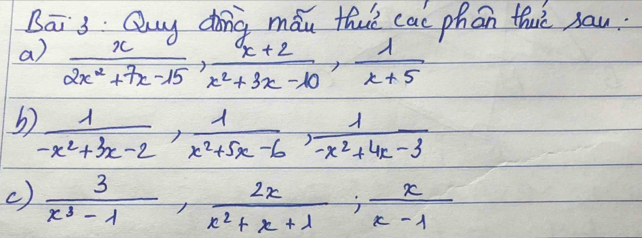 Bài 3: Quy đồng mẫu thức các phân thức sau:
a) x/(2x²+7x-15), (x+2)/(x²+3x-10), 1/(x+5)
b) 1/(-x²+3x-2), 1/(x²+5x-6), 1/(-x²+4x-3)
c) 3/(x³-1), 2x/(x²+x+1); x/(x-1)